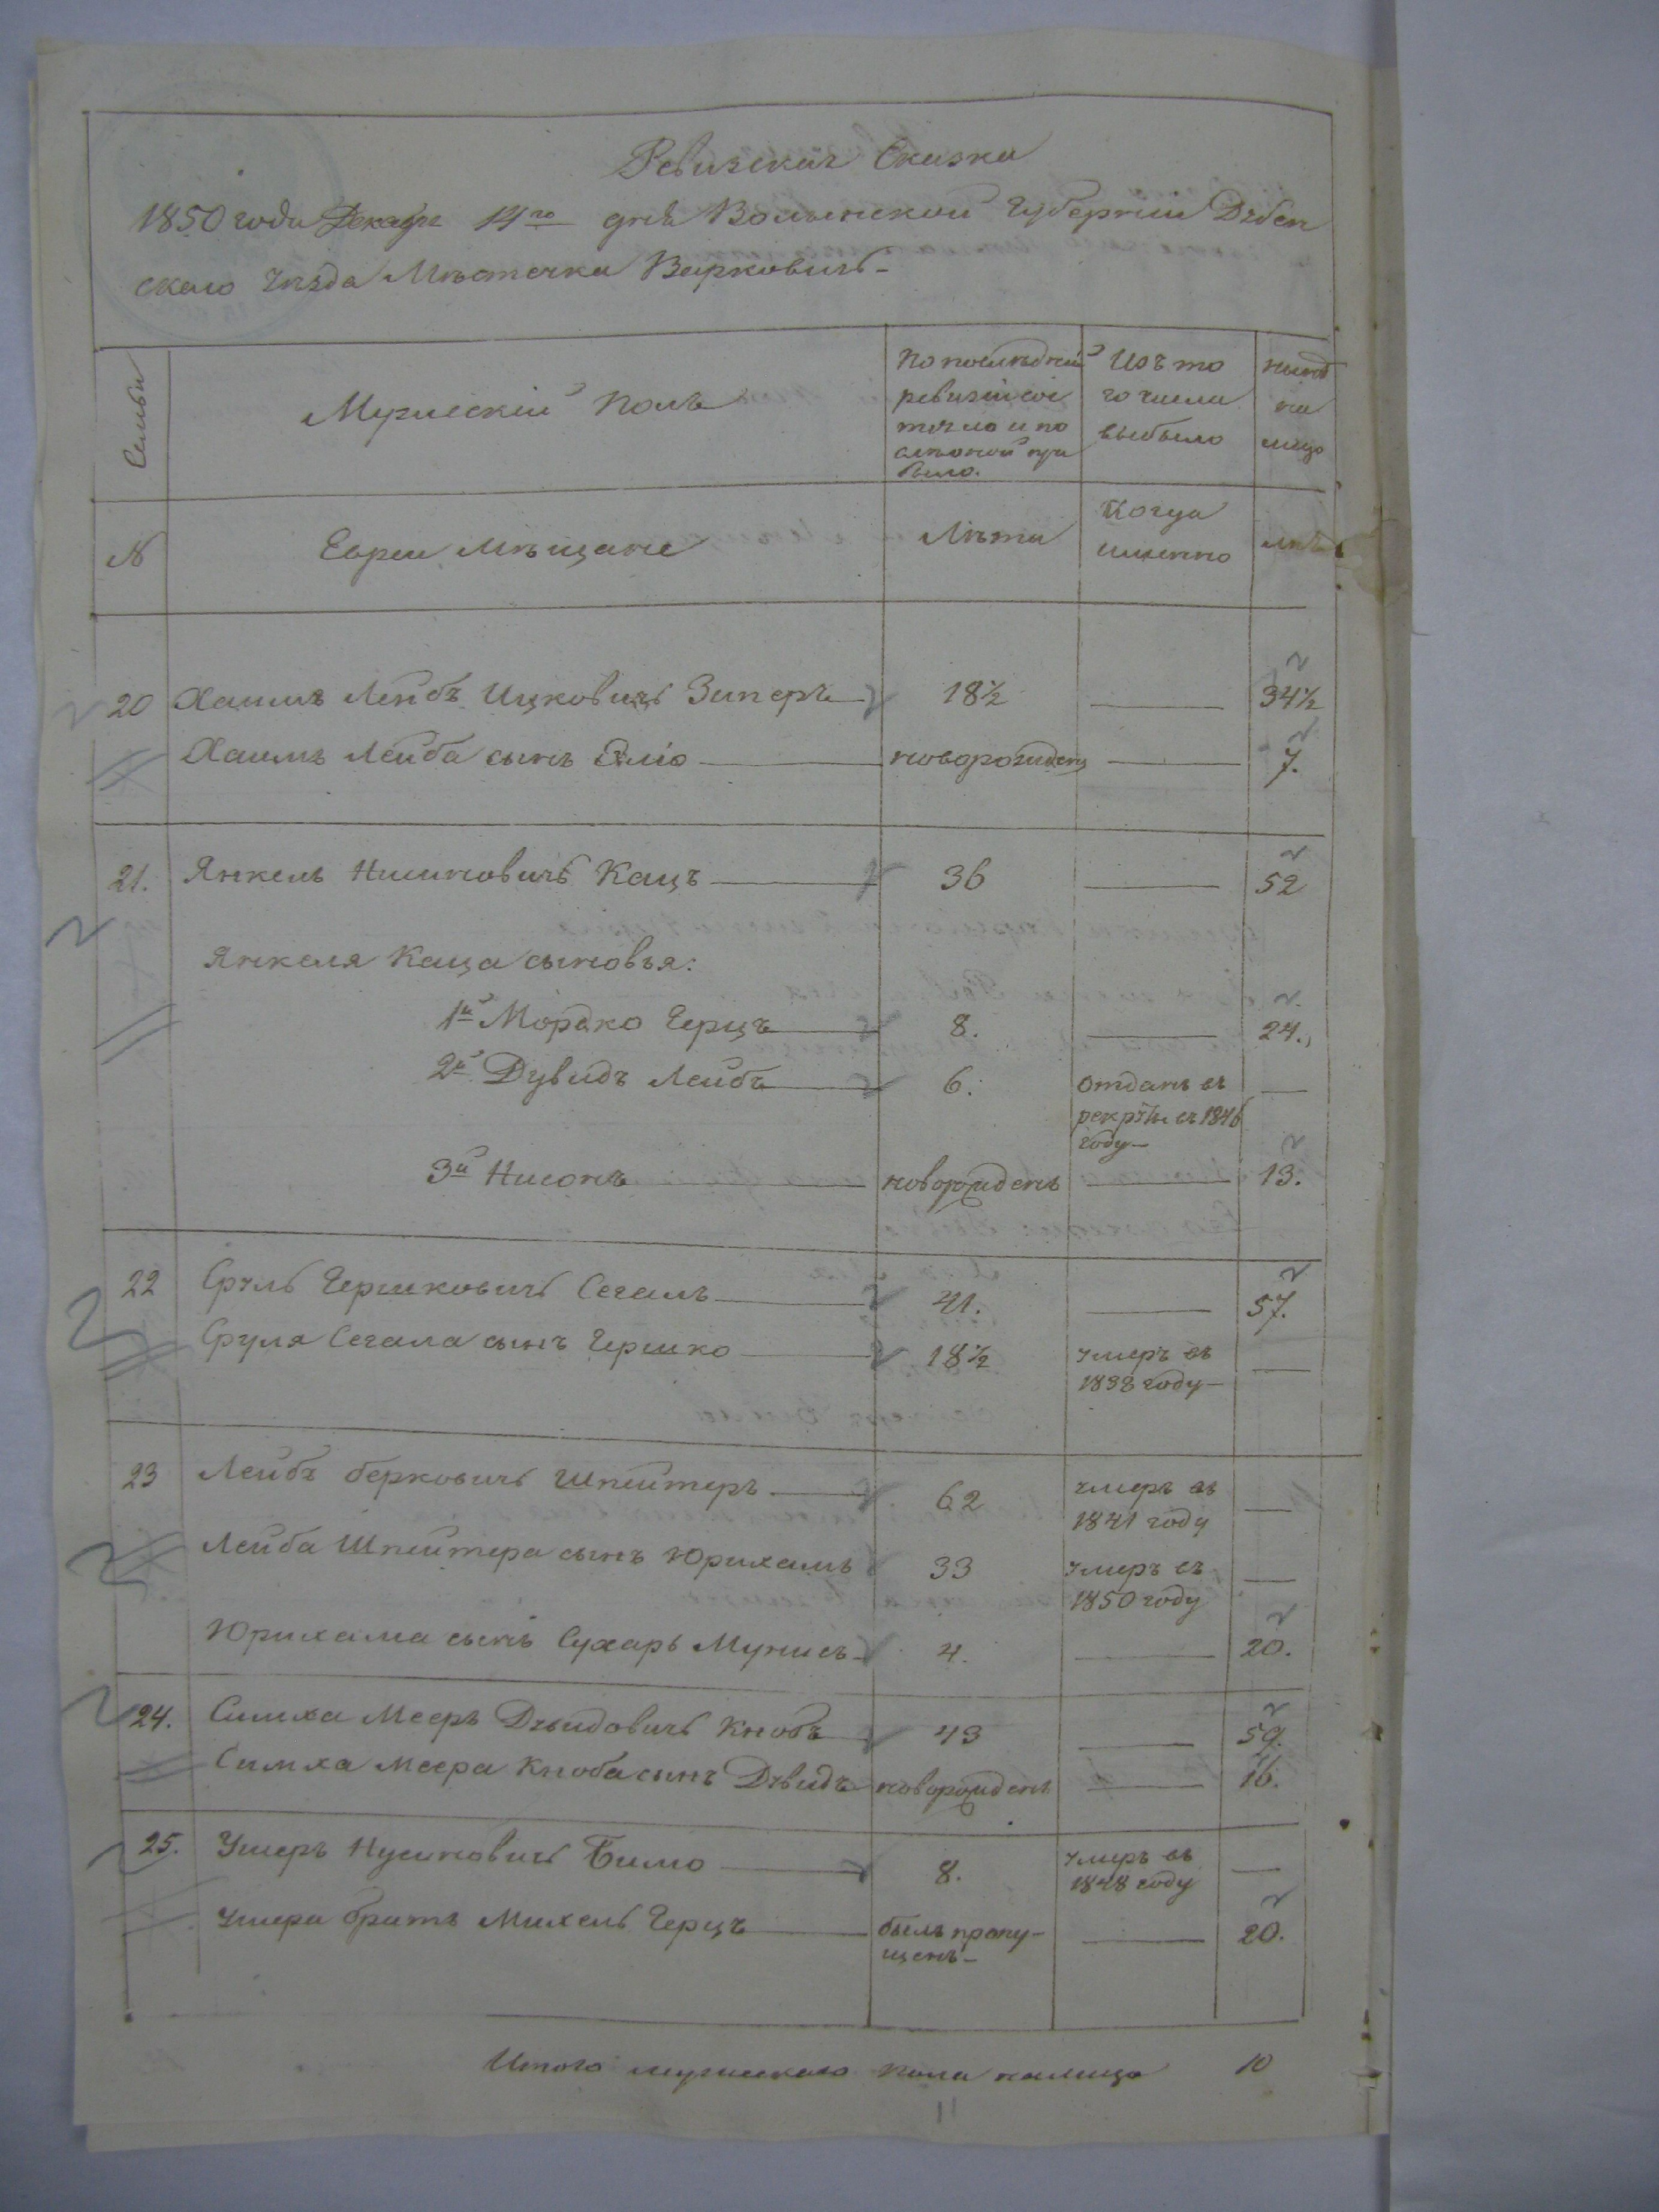 Ревизская Сказка
1850 года Декабря 14го дня Волынской Губернии Дубен
скаго Уезда Местечка Варковичь
Семьи
Мужескій Полъ
По последней
ревизіи сос
тояло и по
оной при
было.
Изъ то
го числа
выбыло
ныне
на
лицо
№
Евреи Мещане
Лета
Когда
именно
лета
20 Хаимъ Лейбъ Ицковичь Зиперъ 18½ — 34½
Хаимъ Лейба сынъ Эліо новорожденъ — 7.
21. Янкель Нисиновичь Кацъ 36 — 52
Янкеля Каца сыновья:
1й Мордко Герцъ 8. — 24.
2й Дувидъ Лейбъ 6. отданъ въ —
рекруты въ 1846
году
3й Нисонъ новорожденъ — 13.
22 Сруль Гершковичь Сегалъ 41. — 57.
Сруля Сегала сынъ Гершко 18½ умеръ въ —
1838 году
23 Лейбъ Берковичь Шпейтеръ 62 умеръ въ —
1841 году
Лейба Шпейтера сынъ Юрихамъ 33 умеръ въ —
1850 году
Юрихама сынъ Сухаръ Мунисъ 4. — 20.
24. Симха Мееръ Дувидовичь Кнобъ 43 — 59.
Симха Меера Кноба сынъ Дувидъ новорожденъ — 16.
25. Ушеръ Нусиновичь Бимо 8. умеръ въ —
1848 году
Ушера братъ Михель Герцъ былъ пропу- — 20.
щенъ
Итого мужескаго пола налицо 10
11